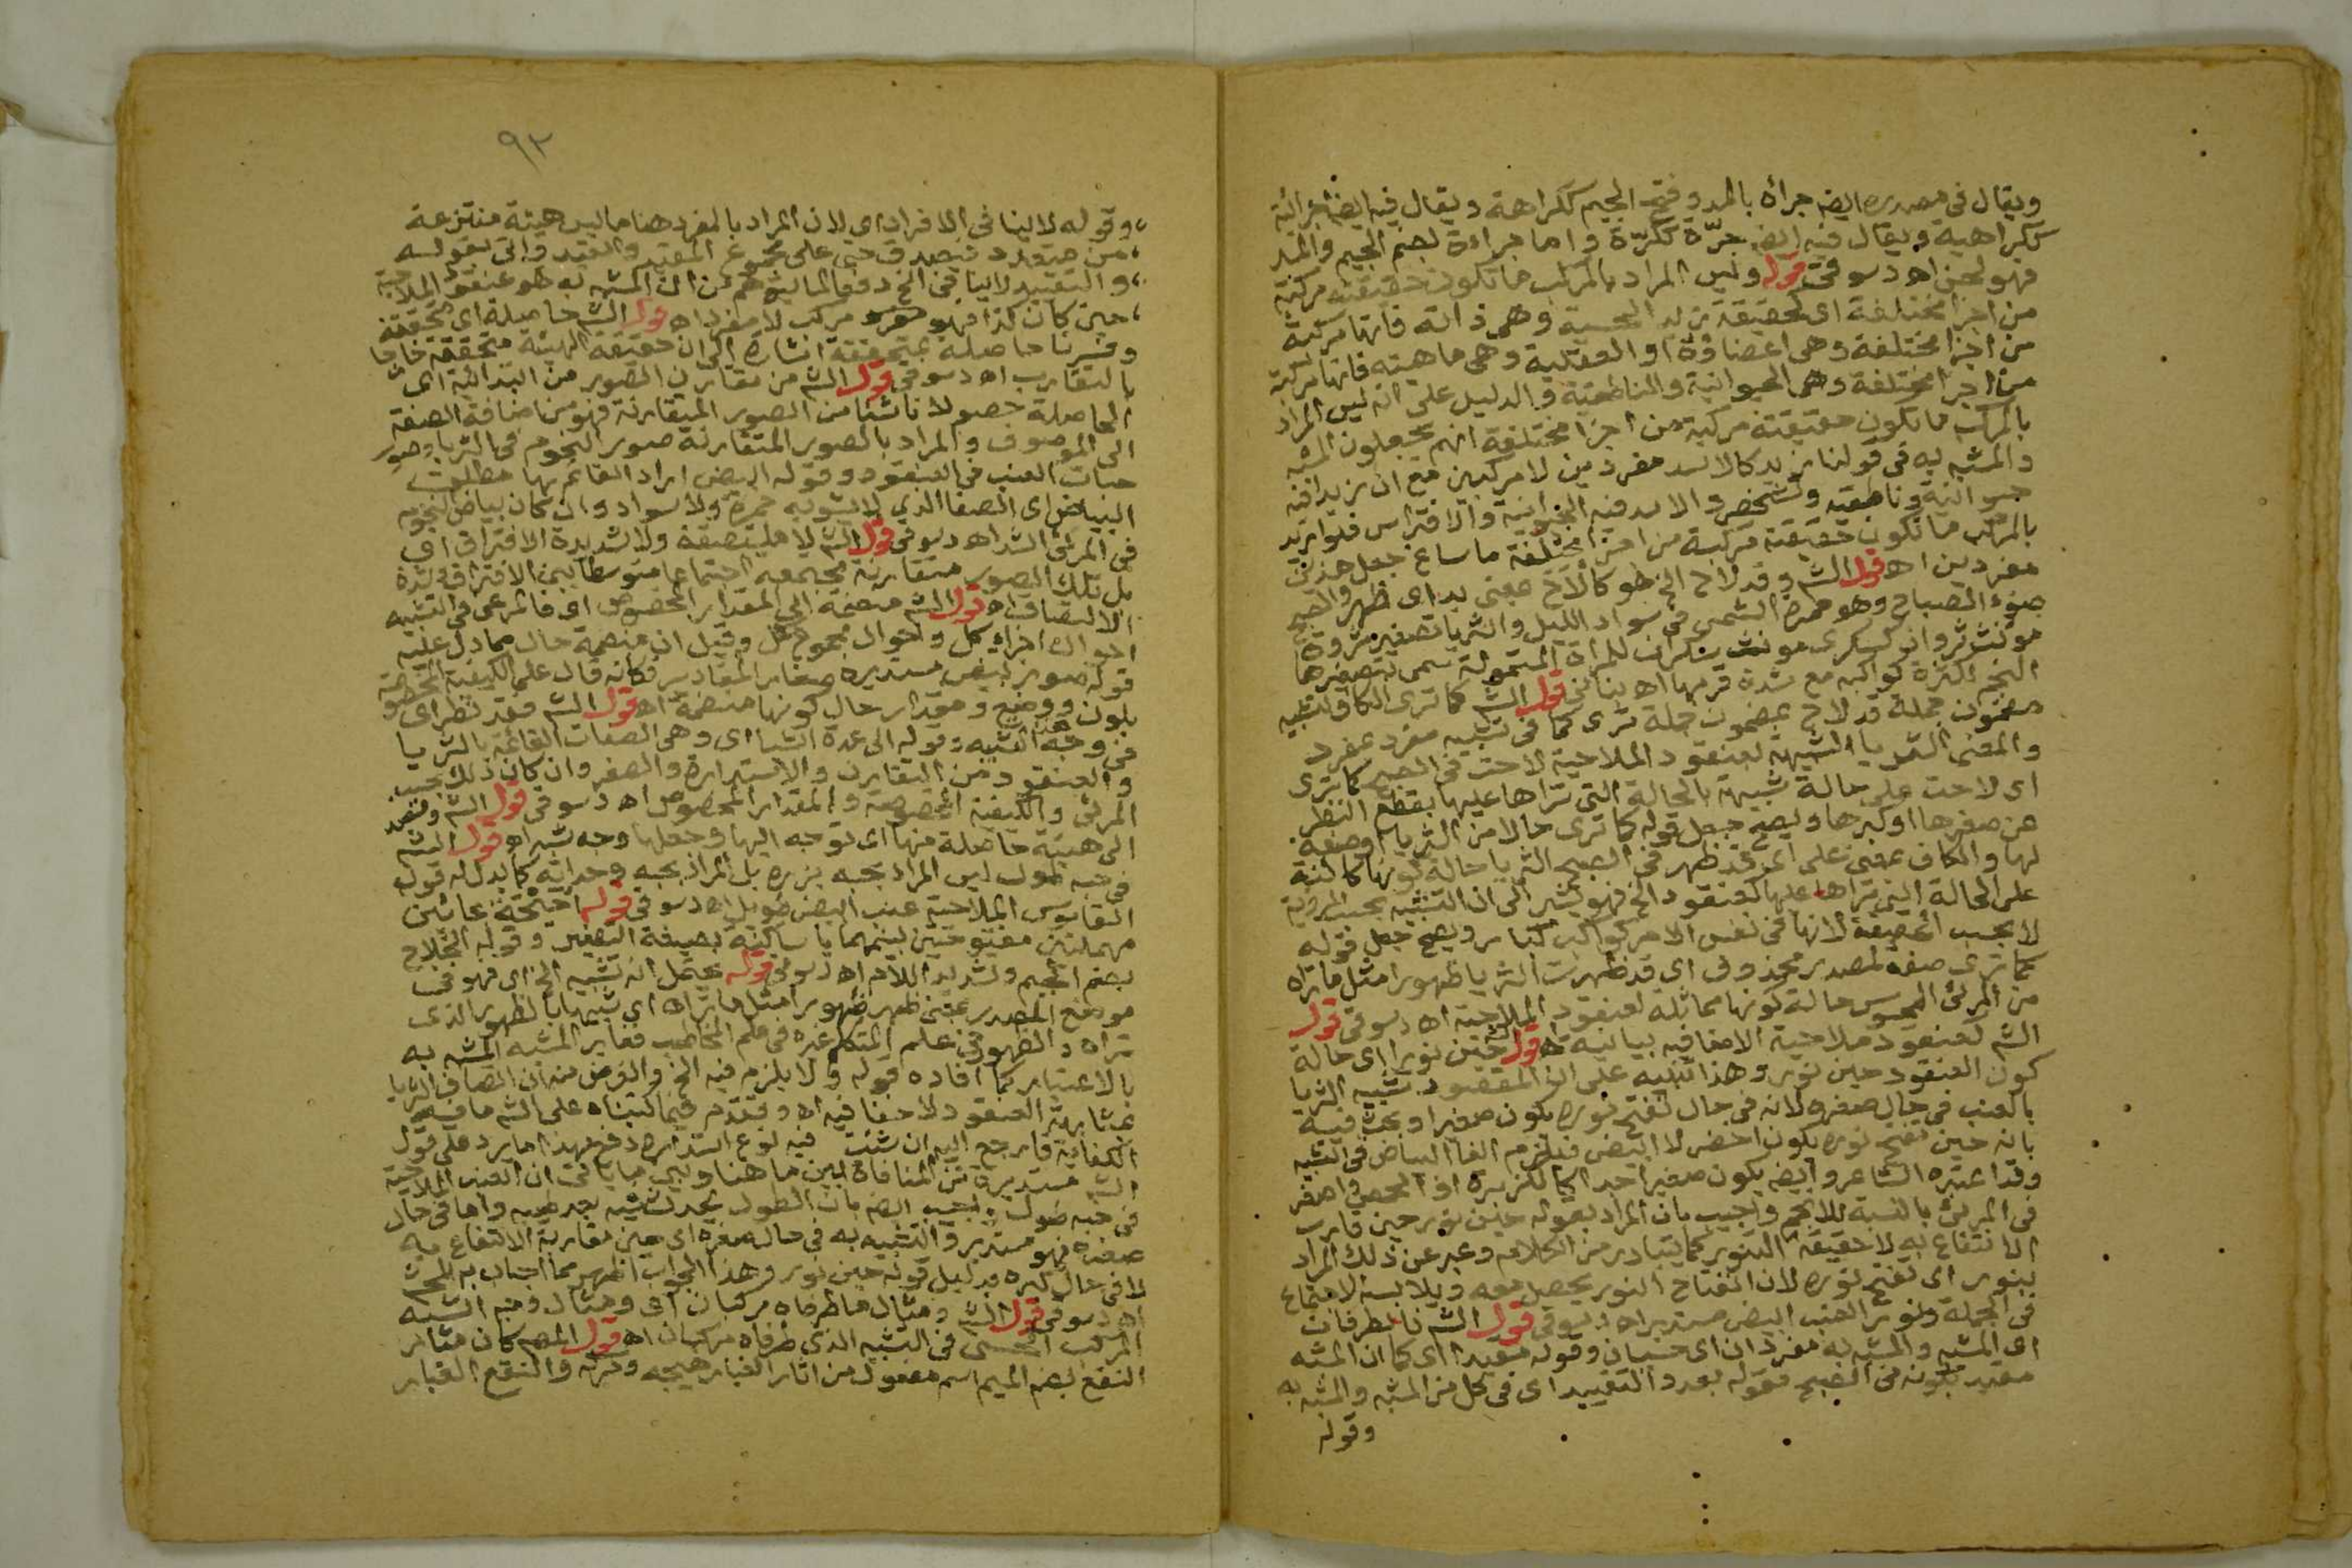 ويقال فى مصدره ايضا جرأه بالمد وفتح الجيم ككراهة ويقال فيه ايضا جرائية
ككراهيه ويقال فيه ايضا جرّة ككرّة واما جراءة بضم الجيم والمد
فهو لحن اه دسوقى قوله وليس المراد بالمركب ما تكون حقيقته مركبة
من اجزا مختلفة اى كحقيقة زيد الحسية وهى ذاته فانها مركبة
من اجزا مختلفة وهى اعضاؤه او العقلية وهى ماهيته فانها مركبة
من اجزا مختلفة وهى الحيوانية والناطقية والدليل على انه ليس المراد
بالمركب ما تكون حقيقته مركبة من اجزا مختلفة انهم يجعلون المشبه
والمشبه به فى قولنا زيد كالاسد مفردين لا مركبين مع ان زيدا فيه
حيوانية وناطقيه وتشخص والاسد فيه الحيوانية والافتراس فلو اريد
بالمركب ما تكون حقيقته مركبة من اجزا مختلفة ما ساغ جعل هذين
مفردين اه قول الشه وقد لاح الخ هو كألاح بمعنى بدا اى ظهر والصبح
ضوء الصباح وهو حمرة الشمس فى سواد الليل والثريا تصغير ثروة
مونث ثروان كسكرى مونث سكران للمرأة المتمولة سمى بتصغيرها
النجم لكثرة كواكبه مع شدة قربها اه بنانى قول الشه كما ترى الكاف لتشبيه
مضمون جملة قد لاح بمضمون جملة ترى كما فى تشبيه مفرد بمفرد
والمعنى الثريا الشبيهة بعنقود الملاحية لاحت فى الصبح كما ترى
اى لاحت على حالة شبيهة بالحالة التى تراها عليها بقطع النظر
عن صغرها او كبرها ويصح جعل قوله كما ترى حالا من الثريا او صفة
لها والكاف بمعنى على اى قد ظهر فى الصبح الثريا حالة كونها كائنة
على الحالة التى تراها عليها كعنقود الخ فهو يشير الى ان التشبيه بحسب الرؤية
لا بحسب الحقيقة لانها فى نفس الامر كواكب كبار ويصح جعل قوله
كما ترى صفة لمصدر محذوف اى قد ظهرت الثريا ظهورا مثل ما تراه
من المرئى المحسوس حالة كونها مماثلة لعنقود الملاحية اه دسوقى قول
الشه كعنقود ملاحية الاضافه بيانيه اه قوله حين نورا اى حالة
كون العنقود حين نور وهذا تنبيه على ان المقصود تشبيه الثريا
بالعنب فى حال صغره لانه فى حال تفتح نوره يكون صغيرا وبحث فيه
بانه حين تفتح نوره يكون اخضر لا ابيض فيلزم الغا البياض فى التشبيه
وقد اعتبره الشاعر وايضا يكون صغيرا جدا كالكزبرة او الحمص واصغر
فى المرئى بالنسبة للانجم واجيب بان المراد بقوله حين نور حين قارب
الانتفاع به لا حقيقة التنوير كما يتبادر من الكلام وعبر عن ذلك المراد
بنور اى تفتح نوره لان انفتاح النور يحصل معه ويلابسه الاجتماع
فى الجملة ونور العنب ابيض مستدير اه دسوقى قول الشه فالطرفان
اى المشبه والمشبه به مفردان اى حسيان وقوله مقيدا اى كما ان المشبه
مقيد بكونه فى الصبح فقوله بعد والتقييد اى فى كل من المشبه والمشبه به
وقوله
٩٢
وقوله لا ينافى الافراد اى لان المراد بالمفرد هنا ما ليس هيئة منتزعة
من متعدد فيصدق حتى على مجموع المقيد والقيد واتى بقوله
والتقييد لا ينافى الخ دفعا لما يتوهم من ان المشبه به هو عنقود الملاحية
حين كان كذا فهو مركب لا مفرد اه قول الشه حاصلة اى متحققة
وفسرنا حاصلة بمتحققة اشارة الى ان حقيقة الهيئة متحققة خارجا
بالتقارب اه دسوقى قول الشه من تقارن الصور من ابتدائية اى
الحاصلة حصولا ناشئا من الصور المتقارنة فهو من اضافة الصفة
الى الموصوف والمراد بالصور المتقارنة صور النجوم فى الثريا وصور
حبات العنب فى العنقود وقوله البيض اراد القائم بها مطلق
البياض اى الصفا الذى لا يشوبه حمرة ولا سواد وان كان بياض النجوم
فى المرئى اشد اه دسوقى قول الشه لا متلاصقة ولا شديدة الافتراق اى
بل تلك الصور متقارنة مجتمعه اجتماعا متوسطا بين الافتراق وشدة
الالتصاق اه قول الشه منضمة الى المقدار المخصوص اى فالمرعى فى التشبيه
احوال اجزاء كل واحوال مجموع كل وقيل ان منضمة حال مما دل عليه
قوله صور بيض مستديره صغار المقادير فكانه قال على الكيفية المخصوصة
بلون ووضع ومقدار حال كونها منضمة اه قول الشه فقد نظر اى
فى وجه التشبيه وقوله الى عدة اشيا اى وهى الصفات القائمة بالثريا
والعنقود من التقارن والاستدارة والصغر وان كان ذلك بحسب
المرئى والكيفية المخصوصة والمقدار المخصوص اه دسوقى قول الشه وقصد
الى هيئة حاصلة منها اى توجه اليها وجعلها وجه شبه اه قول الشه
فى حبه طول ليس المراد بحبه بزره بل المراد بحبه وحداته كما يدل له قول
القاموس الملاحية عنب ابيض طويل اه دسوقى قوله احيحة بحائين
مهملتين مفتوحتين بينهما يا ساكنة بصيغة التصغير وقوله الجلاح
بضم الجيم وتشديد اللام اه دسوقى قوله يحتمل انه تشبيه الخ اى فهو فى
موضع المصدر بمعنى ظهر ظهورا مثل ما تراه اى تشبيها بالظهور الذى
تراه والظهور فى علم المتكلم غيره فى علم المخاطب فغاير المشبه المشبه به
بالاعتبار كما افاده قوله ولا يلزم فيه الخ والغرض منه ان اتصاف الثريا
بمشابهة العنقود لا خفا فيه اه وتقدم فيما كتبناه على الشه ما فيه
الكفاية فارجع اليه ان شئت فيه نوع استدارة دفع بهذا ما يرد على قول
الشه مستديرة من المنافاة بين ما هنا وبين ما يأتى ان العنب الملاحية
فى حبه طول واجيب ايضا بان الطول يحدث فيه بعد طيبه واما فى حال
صغره فهو مستدير والتشبيه به فى حال صغره اى حين مقاربة الانتفاع به
لا فى حال كبره بدليل قوله حين نور وهذا الجواب اظهر مما اجاب به الشه
اه دسوقى قول الشه ومثال ما طرفاه مركبان اى ومثال وجه الشبه
المركب الحسى فى التشبيه الذى طرفاه مركبان اه قول المصه كأن مثار
النقع بضم الميم اسم مفعول من اثار الغبار هيجه وحركه والنقع الغبار